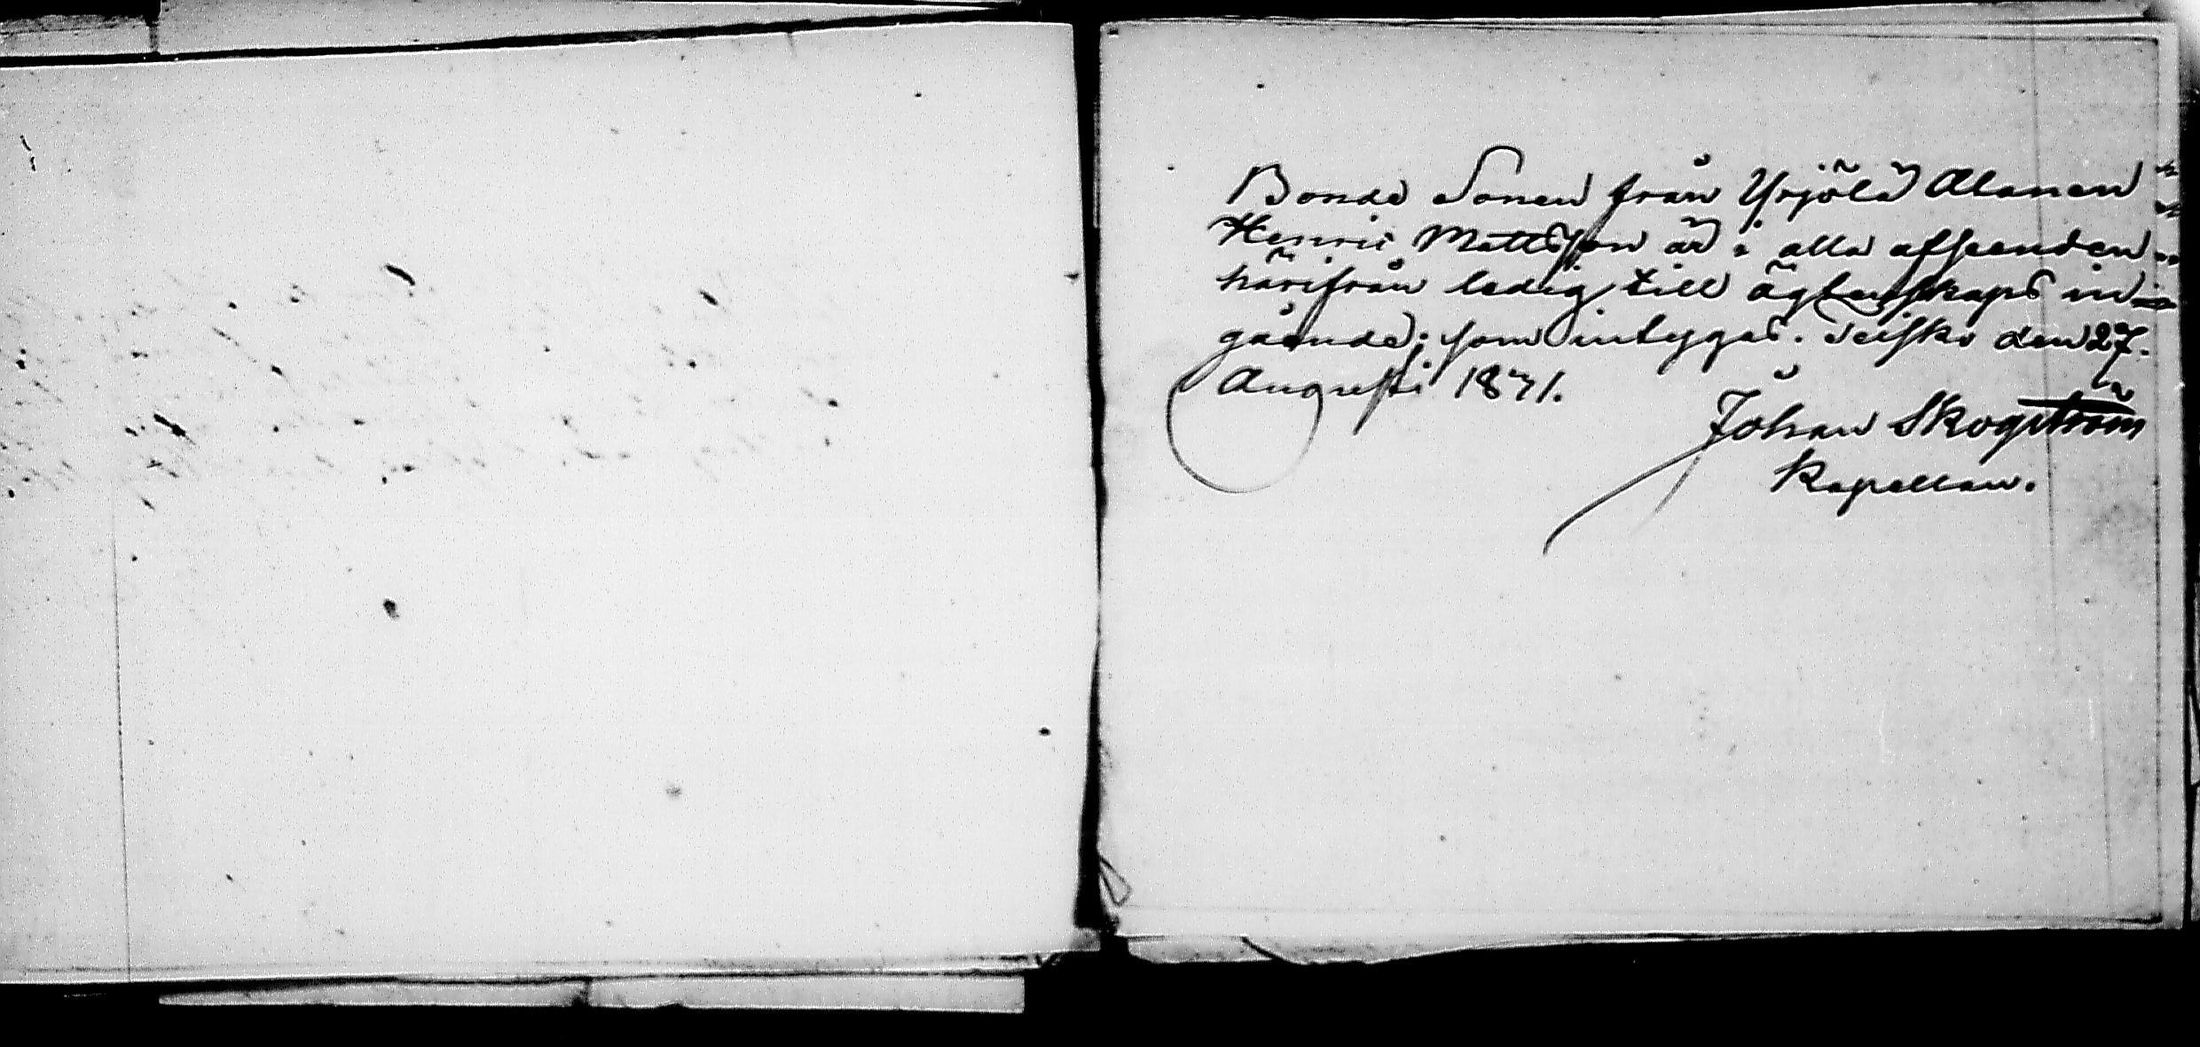 Bonde Sonen från Yrjölä Alanen
Henric Mattsson är i alla afseenden
härifrån ledig till ägtenskaps in-
gående; som intygas. Teisko den 27.
Augusti 1871.
Johan Skogström
Kapellan.